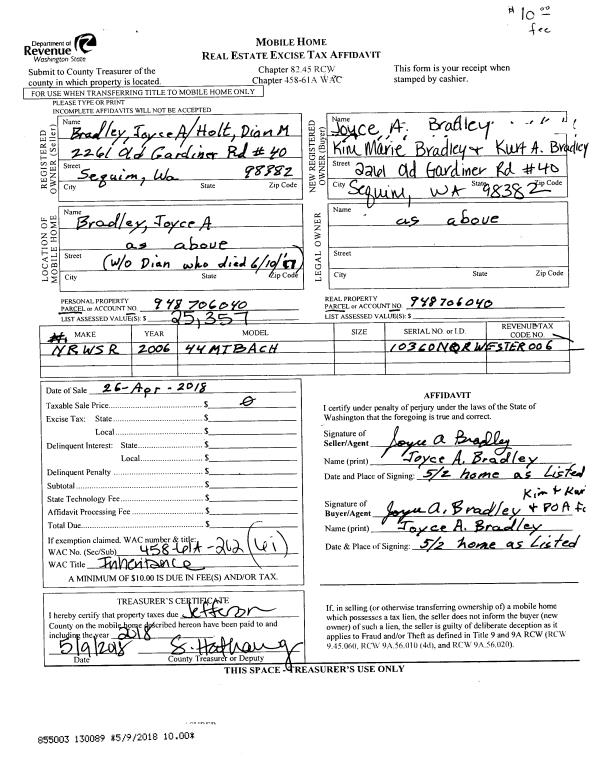 $ 10.00
fee
Department of
Revenue
Washington State
MOBILE HOME
REAL ESTATE EXCISE TAX AFFIDAVIT
Submit to County Treasurer of the
county in which property is located.
Chapter 82.45 RCW
Chapter 458-61A WAC
This form is your receipt when
stamped by cashier.
FOR USE WHEN TRANSFERRING TITLE TO MOBILE HOME ONLY
PLEASE TYPE OR PRINT
INCOMPLETE AFFIDAVITS WILL NOT BE ACCEPTED
REGISTERED
OWNER (Seller)
Name
Bradley, Joyce A/ Holt, Dian M
2261 Old Gardiner Rd #40
Street
Sequim, Wa 98382
City State Zip Code
NEW REGISTERED
OWNER (Buyer)
Name
Joyce A. Bradley
Kim Marie Bradley & Kurt A. Bradley
Street 2261 Old Gardiner Rd #40
City Sequim, WA State 98382 Zip Code
LOCATION OF
MOBILE HOME
Name
Bradley, Joyce A
as above
Street
(w/o Dian who died 6/10/
City State Zip Code
LEGAL OWNER
Name
as above
Street
City State Zip Code
PERSONAL PROPERTY
PARCEL or ACCOUNT NO. 948706040
LIST ASSESSED VALUE(S): $ 25,357
REAL PROPERTY
PARCEL or ACCOUNT NO. 948706040
LIST ASSESSED VALUE(S): $
MAKE YEAR MODEL SIZE SERIAL NO. or I.D. REVENUE TAX CODE NO.
NRWSR 2006 44MTBACH 10360NORWESTER006
Date of Sale 26-Apr-2018
Taxable Sale Price $ 0
Excise Tax: State $
Local $
Delinquent Interest: State $
Local $
Delinquent Penalty $
Subtotal $
State Technology Fee $
Affidavit Processing Fee $
Total Due $
If exemption claimed, WAC number & title:
WAC No. (Sec/Sub) 458-61A-202 (6i)
WAC Title Inheritance
A MINIMUM OF $10.00 IS DUE IN FEE(S) AND/OR TAX.
AFFIDAVIT
I certify under penalty of perjury under the laws of the State of
Washington that the foregoing is true and correct.
Signature of
Seller/Agent Joyce A Bradley
Name (print) Joyce A. Bradley
Date and Place of Signing: 5/2 home as Listed
Kim & Kur
Signature of
Buyer/Agent Joyce A. Bradley & POA fo
Name (print) Joyce A. Bradley
Date & Place of Signing: 5/2 home as Listed
TREASURER'S CERTIFICATE
I hereby certify that property taxes due Jefferson
County on the mobile home described hereon have been paid to and
including the year 2018
5/9/2018 S. Hathaway
Date County Treasurer or Deputy
If, in selling (or otherwise transferring ownership of) a mobile home
which possesses a tax lien, the seller does not inform the buyer (new
owner) of such a lien, the seller is guilty of deliberate deception as it
applies to Fraud and/or Theft as defined in Title 9 and 9A RCW (RCW
9.45.060, RCW 9A.56.010 (4d), and RCW 9A.56.020).
THIS SPACE - TREASURER'S USE ONLY
855003 130089 *5/9/2018 10.00*